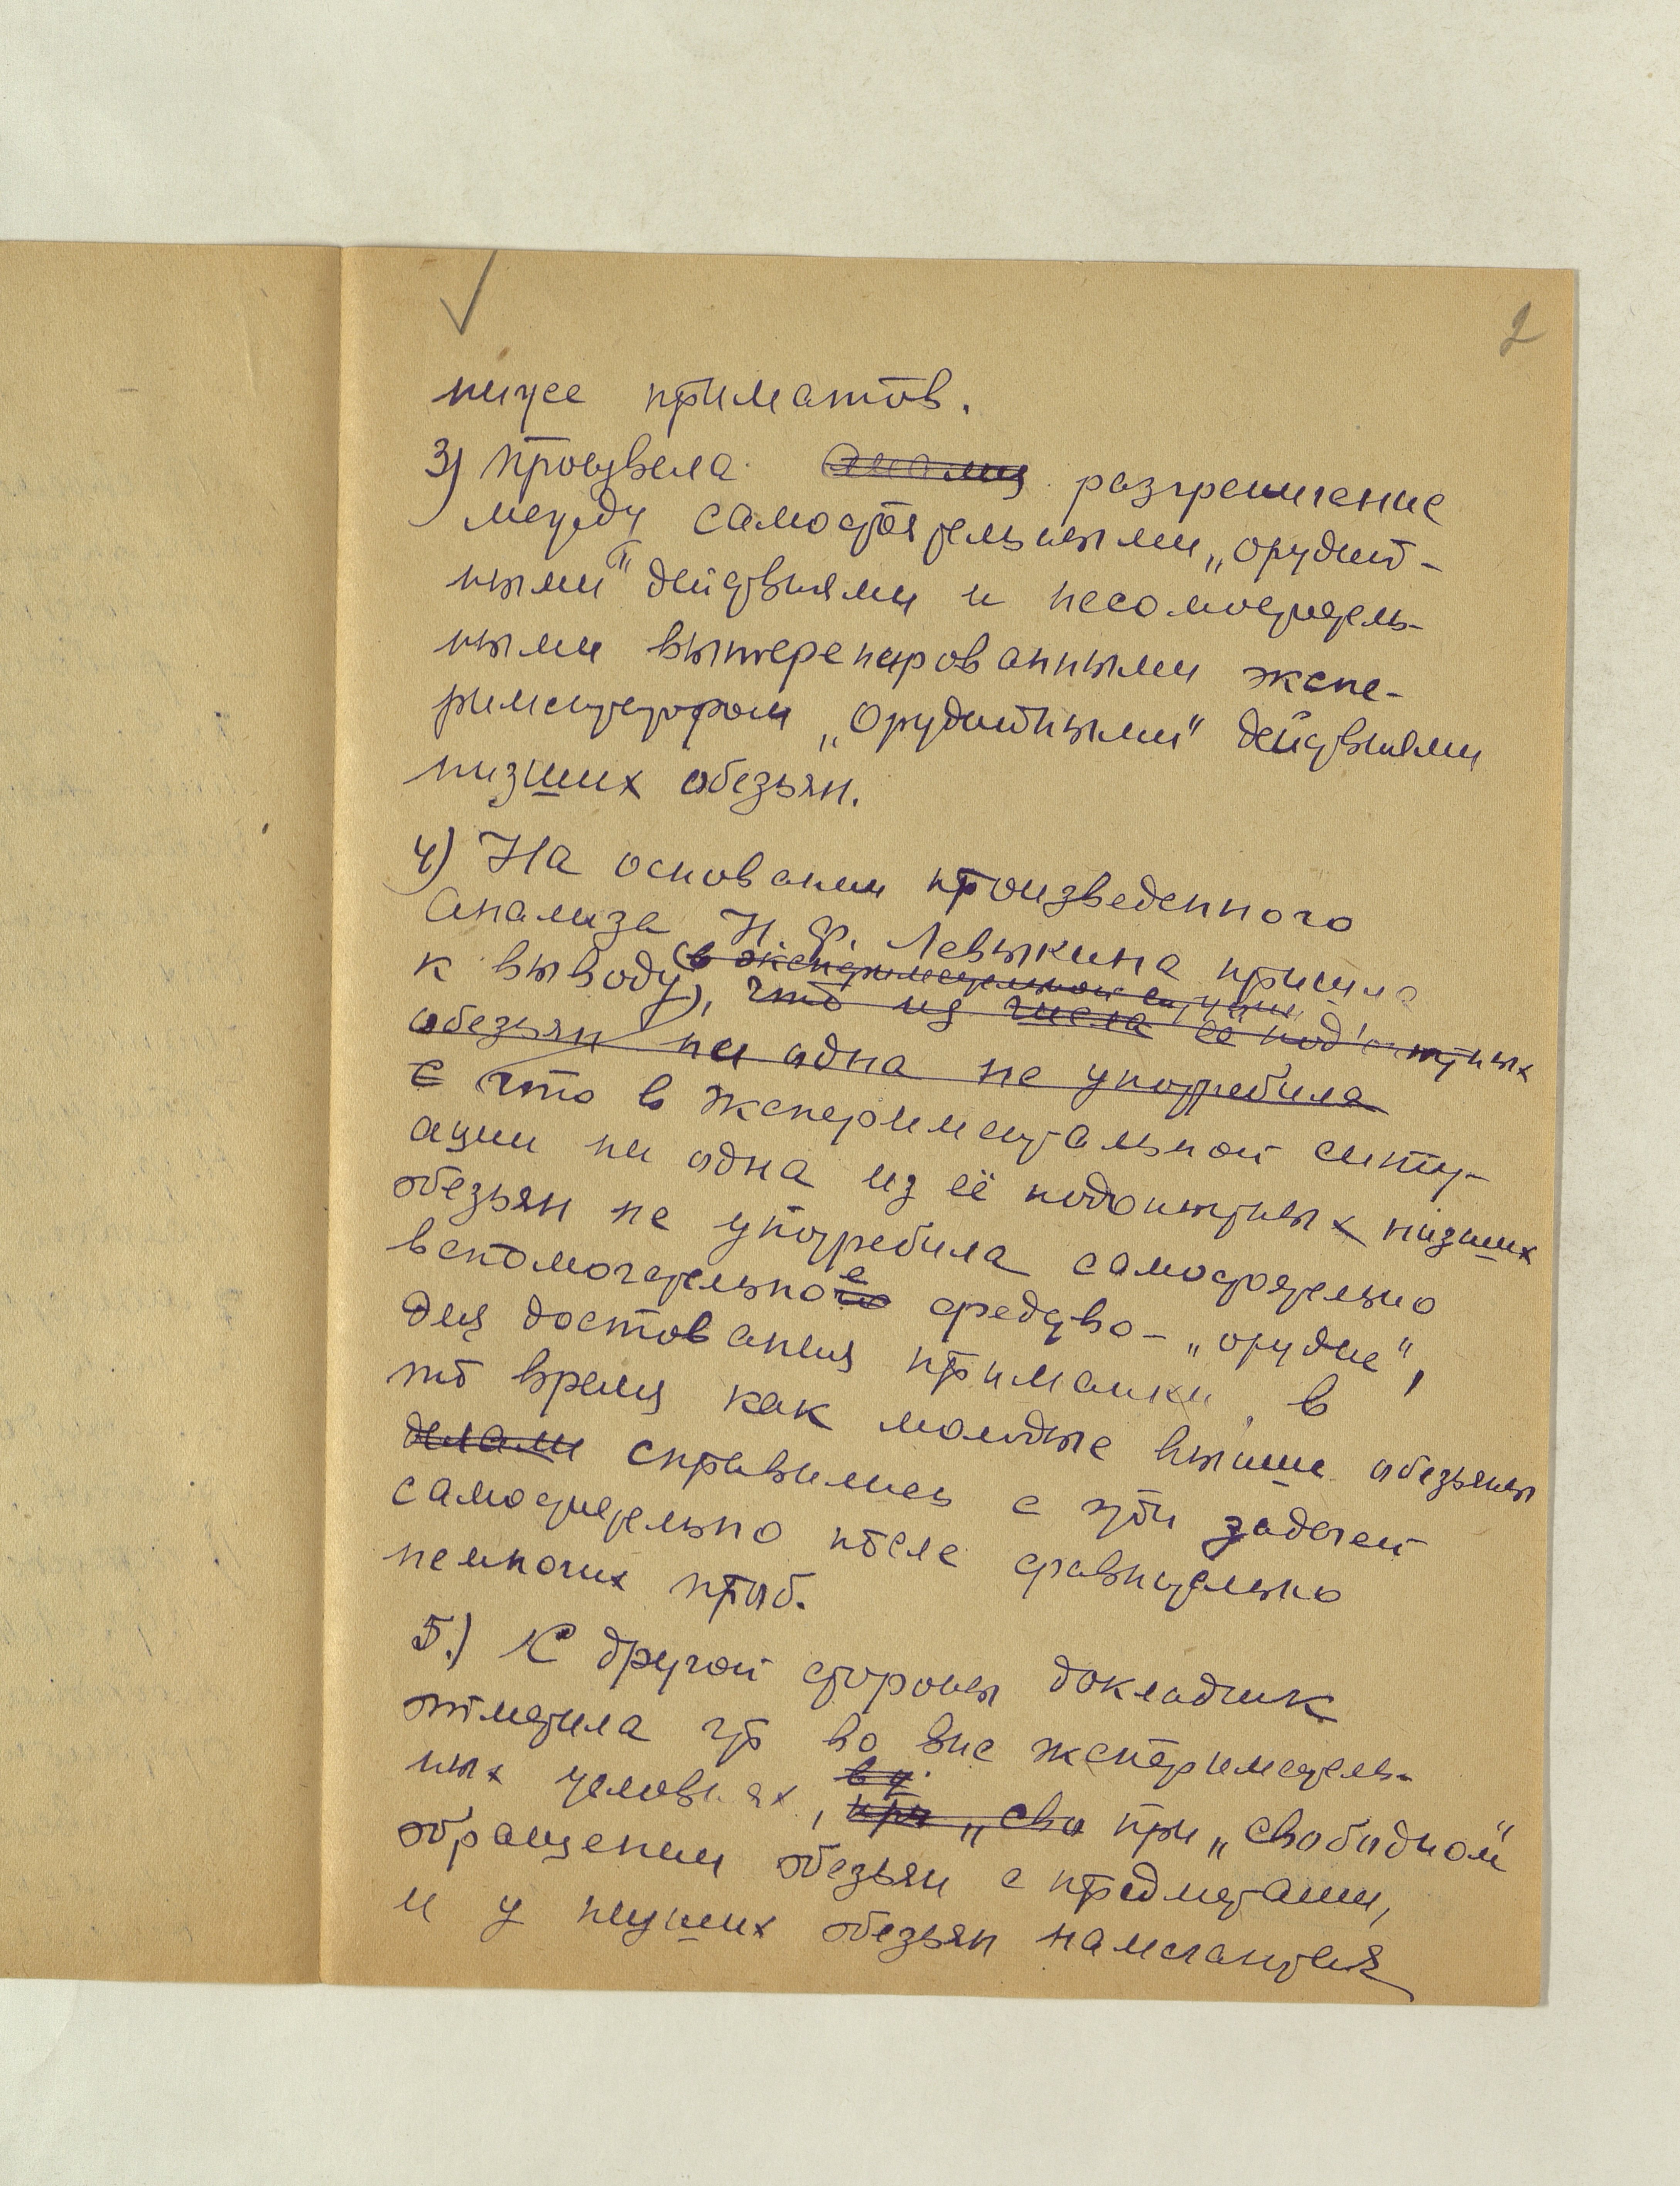 2
ниже приматов.
3) Произвела анализ разграничение
между самостоятельными „орудий-
ными" действиями и несамостоятель-
ными вытренированными экспе-
риментатором „орудийными" действиями
низших обезьян.
4) На основании произведенного
анализа Н. Ф. Левыкина пришла
(в экспериментальной ситуации
к выводу), что из числа её под'опытных
обезьян ни одна не употребила
с что в экспериментальной ситу-
ации ни одна из её подопытных низших
обезьян не употребила самостоятельно
вспомогательное средство – „орудие",
для доставания приманки, в
то время как молодые высшие обезьяны
делали справились с этой задачей
самостоятельно после сравнительно
немногих проб.
5.) С другой стороны докладчик
отметила что во вне эксперименталь-
ных условиях, при „сво при „свободном"
обращении обезьян с предметами,
и у низших обезьян намечается